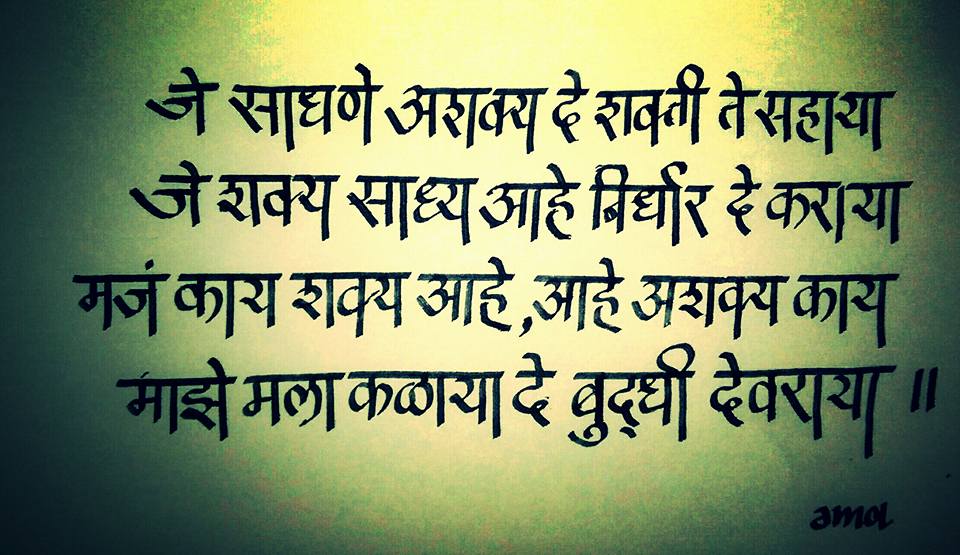 जे साधणे अशक्य दे शक्ती ते सहाया
जे शक्य साध्य आहे निर्धार दे कराया
मजं काय शक्य आहे, आहे अशक्य काय
माझे मला कळाया दे बुद्धी देवराया ॥
amol